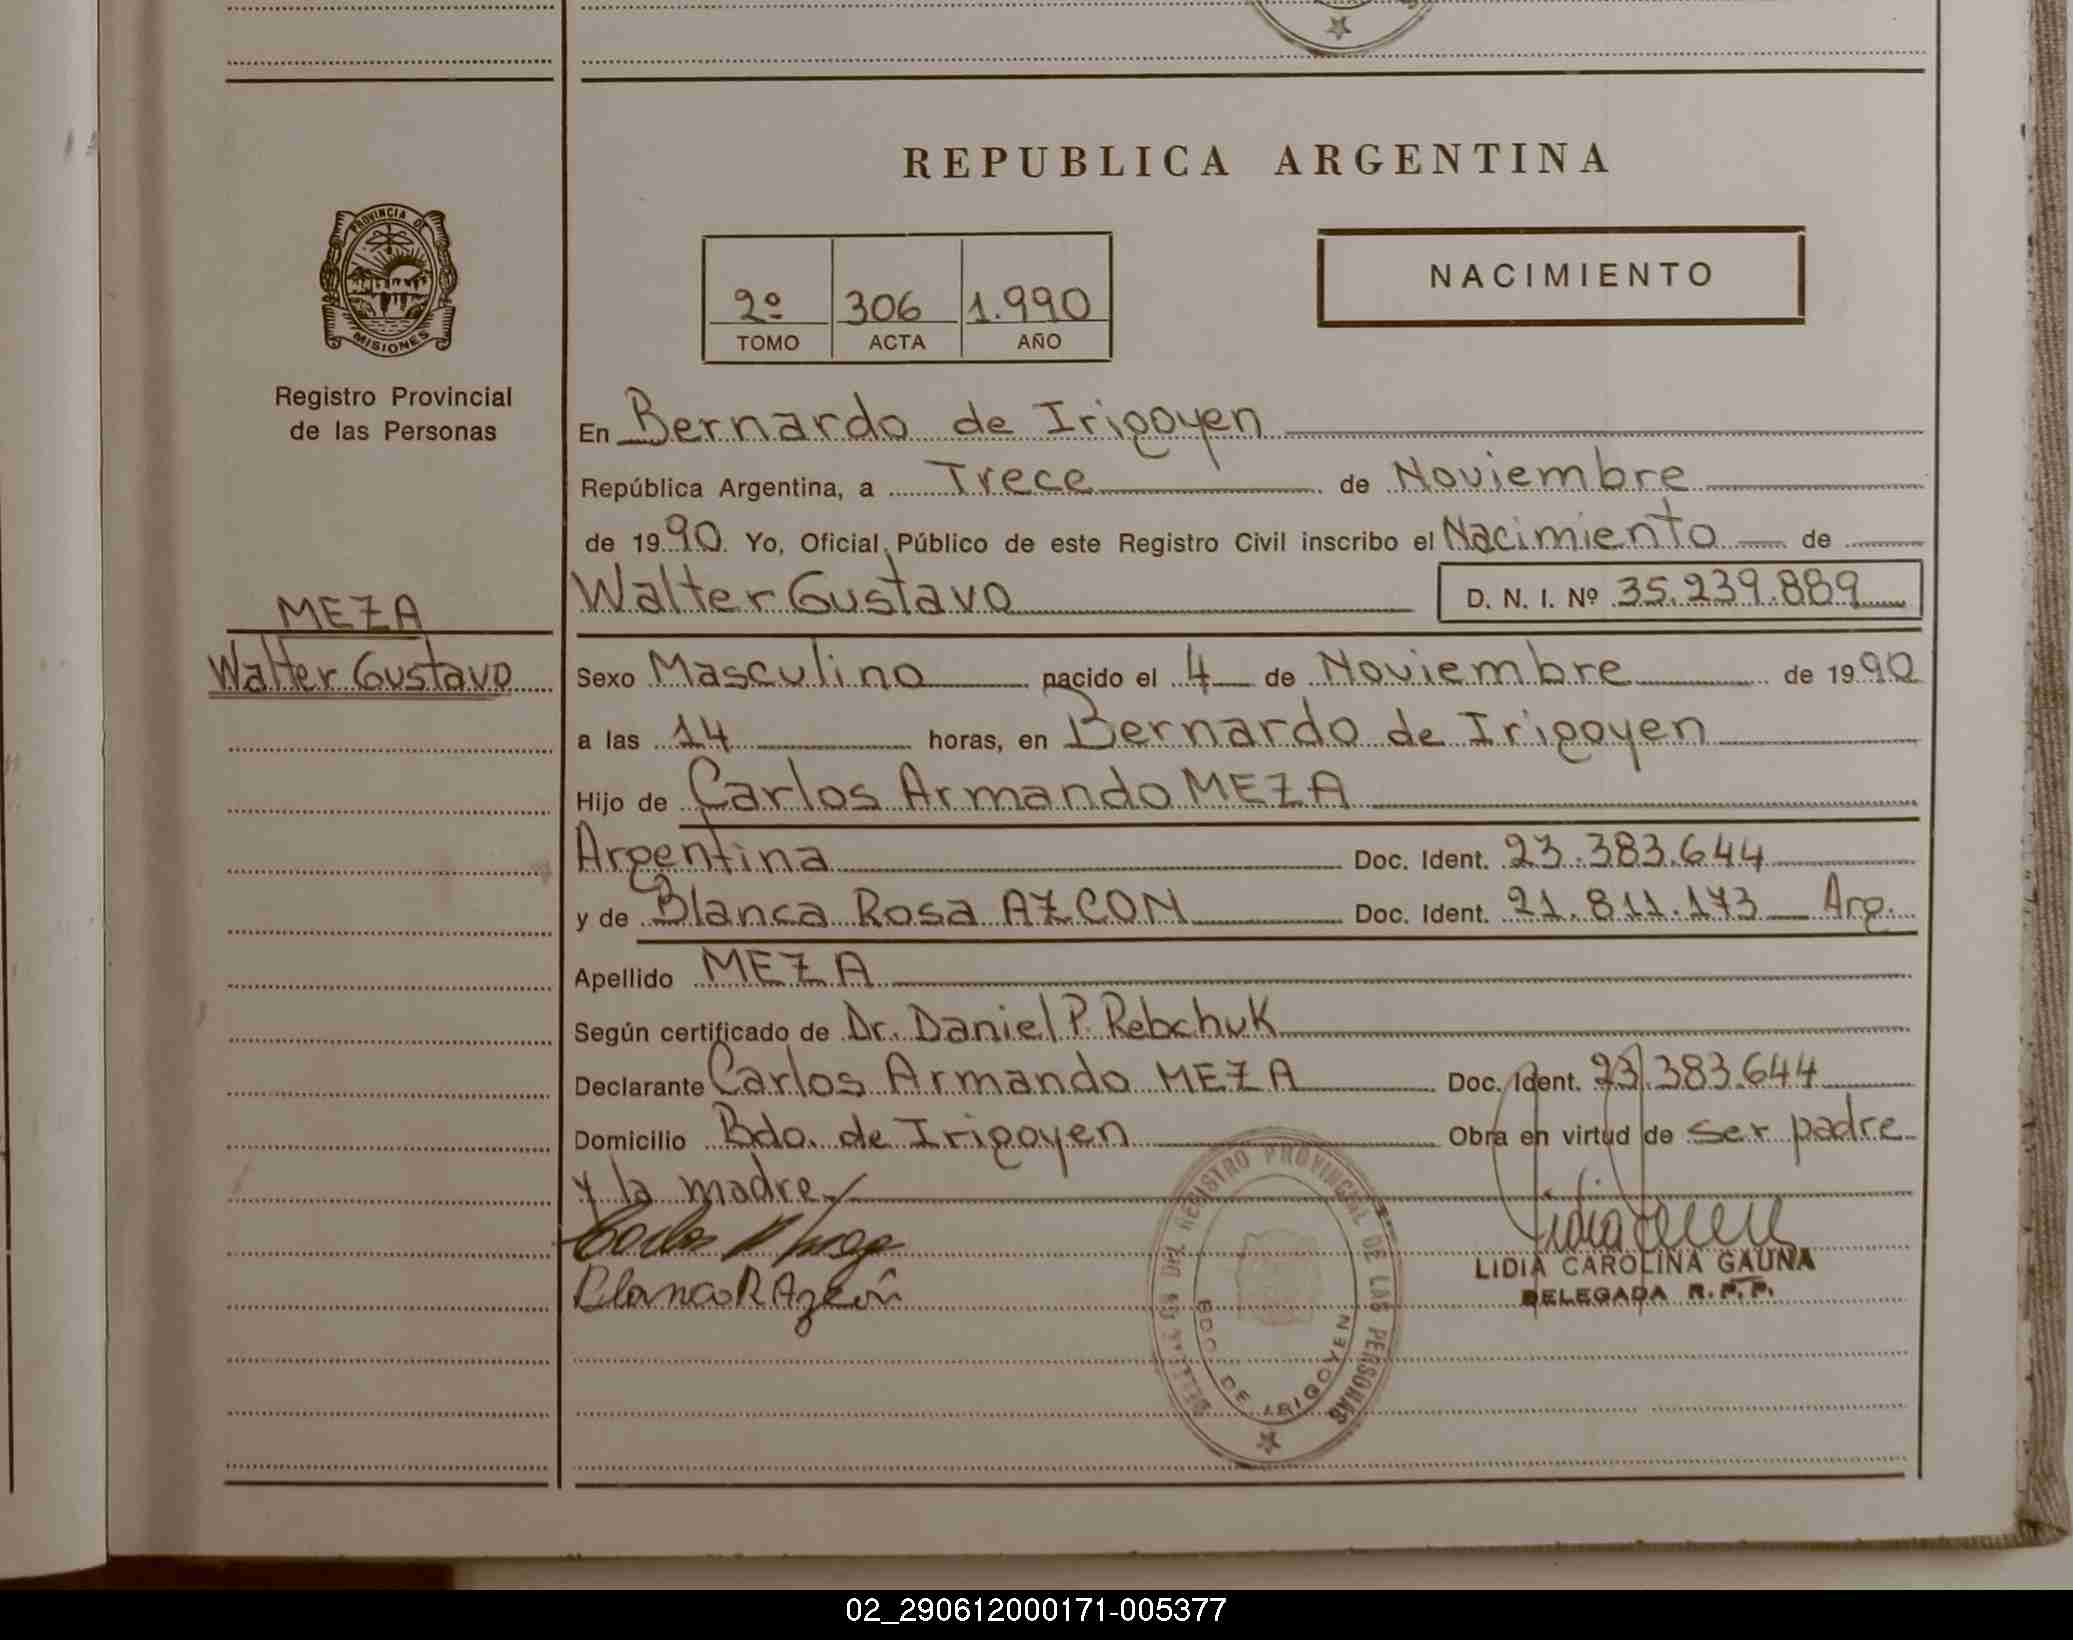 REPUBLICA ARGENTINA
PROVINCIA DE
MISIONES
Registro Provincial
de las Personas
2º 306 1.990
TOMO ACTA AÑO
NACIMIENTO
En Bernardo de Irigoyen
República Argentina, a Trece de Noviembre
de 1990. Yo, Oficial Público de este Registro Civil inscribo el Nacimiento de
Walter Gustavo D. N. I. Nº 35.239.889
MEZA
Walter Gustavo
Sexo Masculino nacido el 4 de Noviembre de 1990
a las 14 horas, en Bernardo de Irigoyen
Hijo de Carlos Armando MEZA
Argentina Doc. Ident. 23.383.644
y de Blanca Rosa AZCON Doc. Ident. 21.811.173 Arg.
Apellido MEZA
Según certificado de Dr. Daniel P. Rebchuk
Declarante Carlos Armando MEZA Doc. Ident. 23.383.644
Domicilio Bdo. de Irigoyen Obra en virtud de ser padre
y la madre
Blanca R Azcón
LIDIA CAROLINA GAUNA
DELEGADA R. P. P.
DEL REGISTRO PROVINCIAL DE LAS PERSONAS
BDO DE IRIGOYEN
02_290612000171-005377